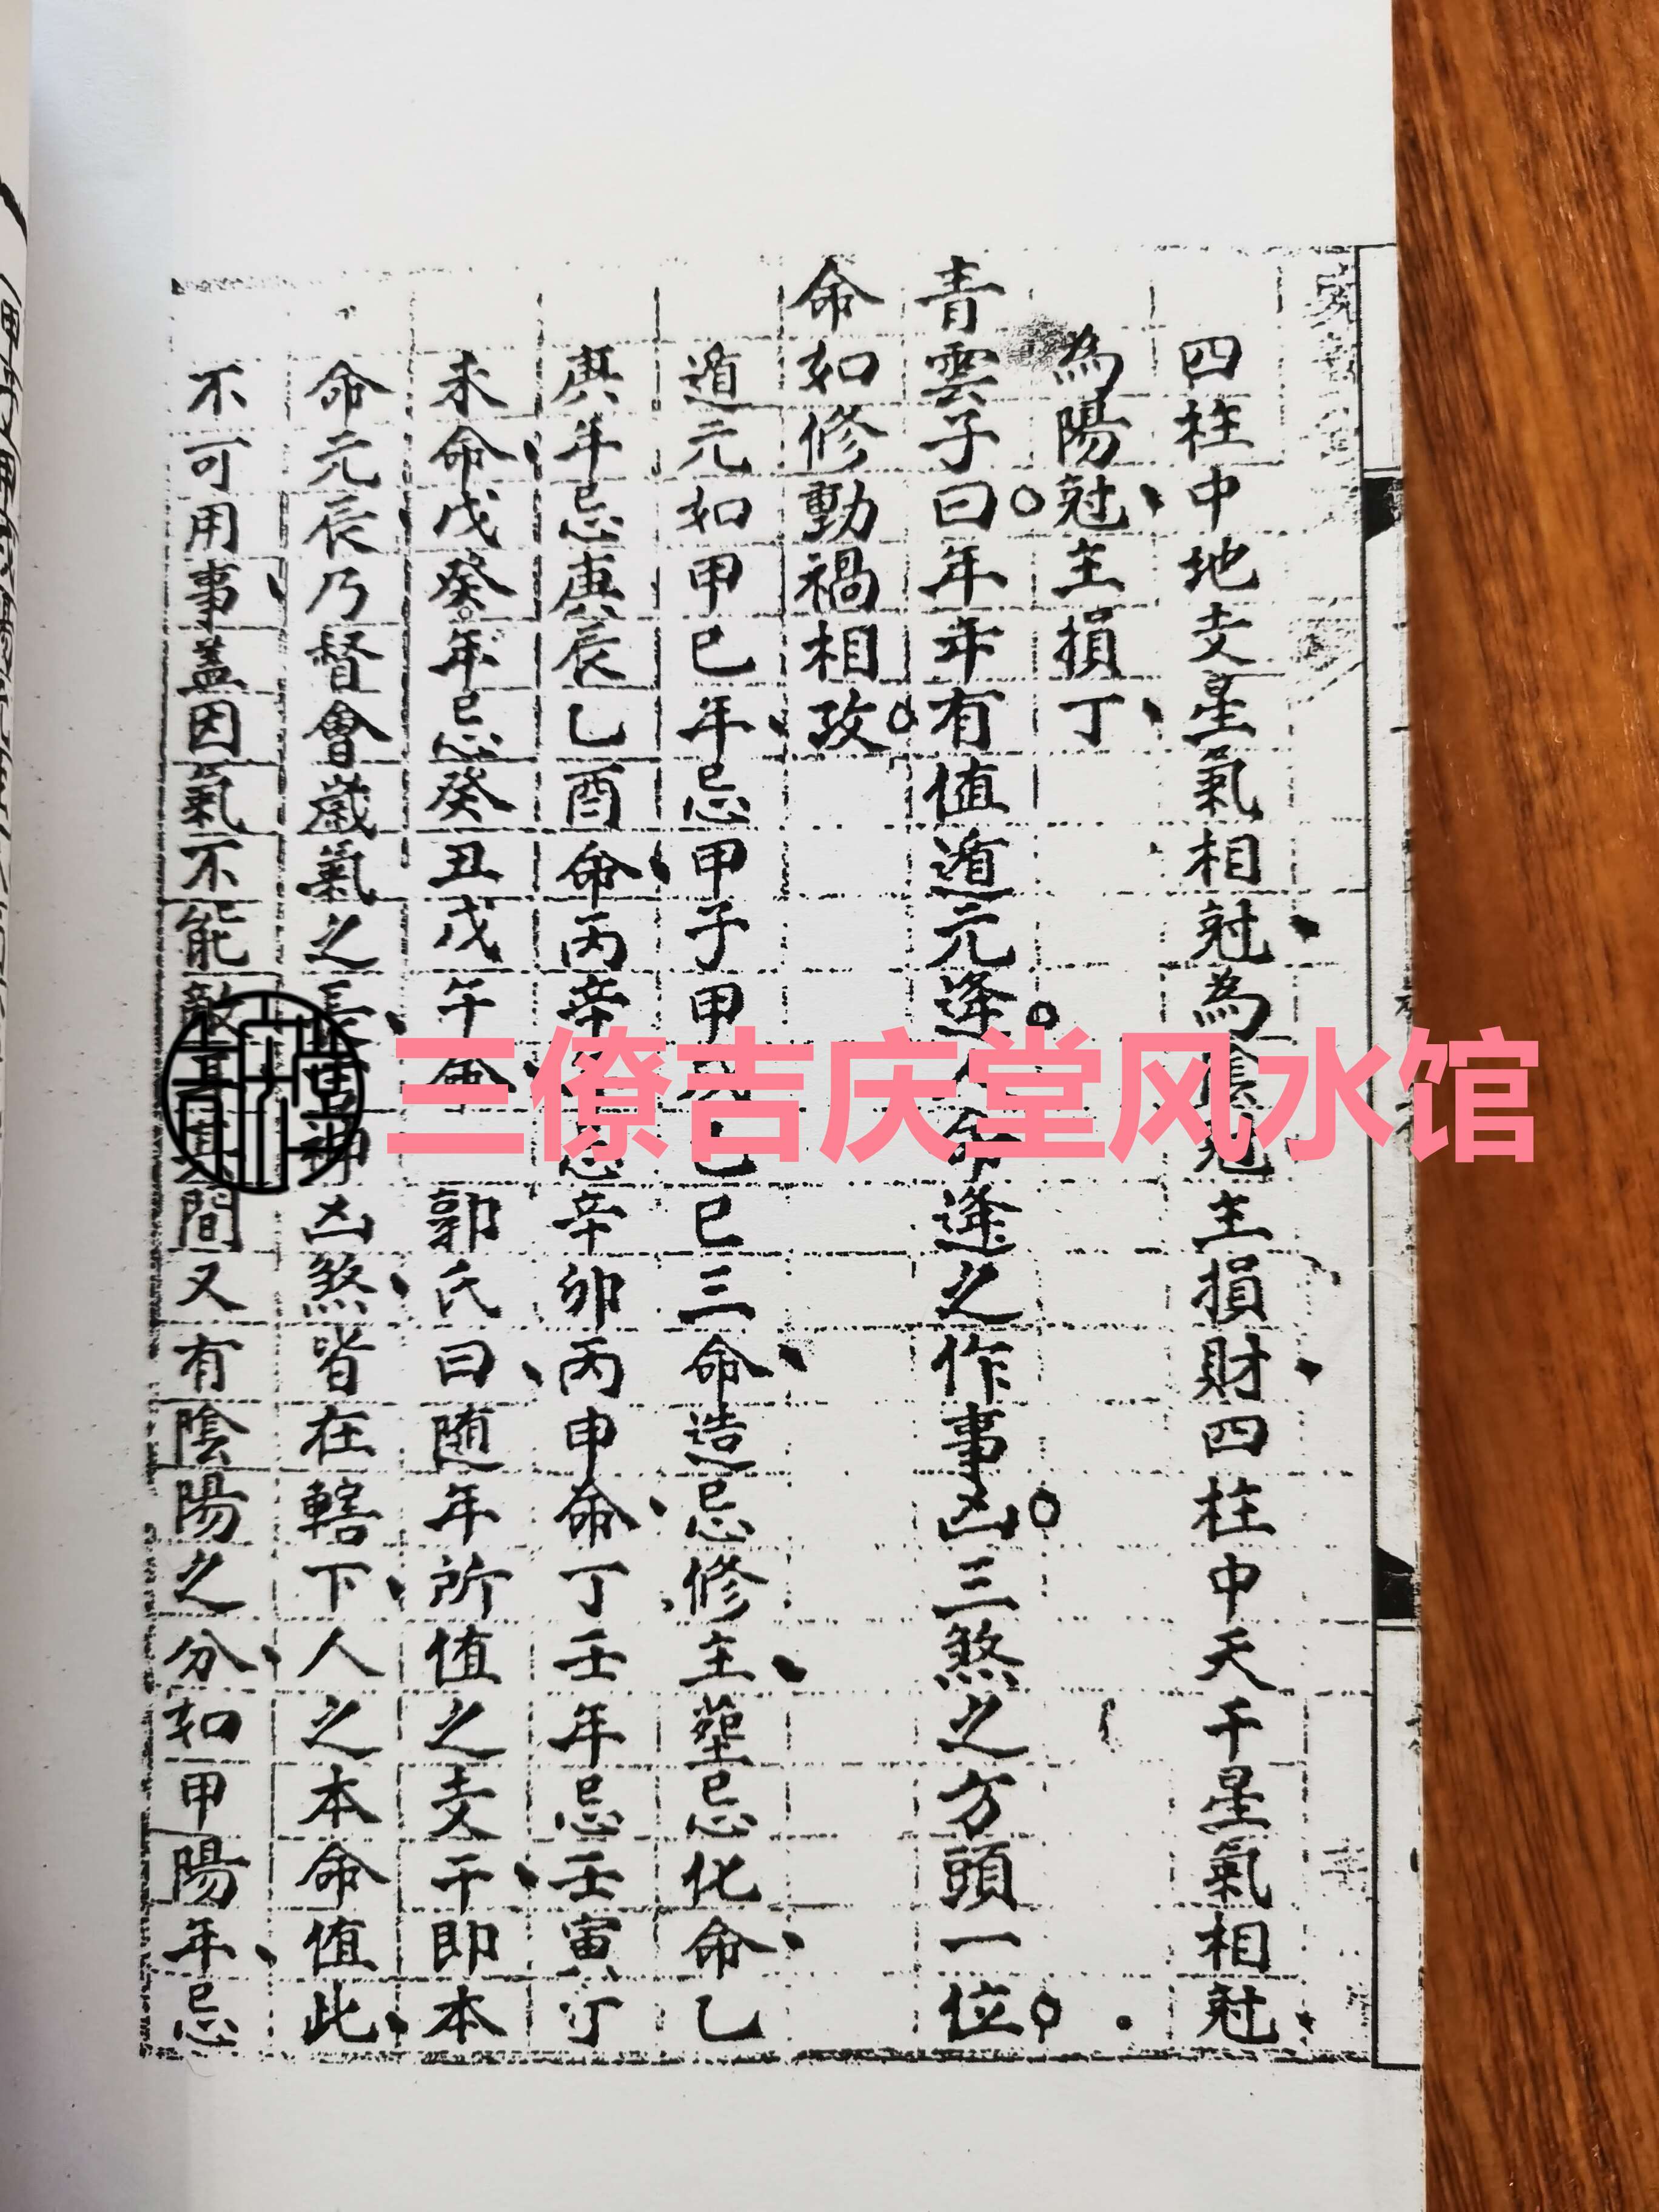 四柱中地支星氣相尅為陰尅主損財四柱中天干星氣相尅
為陽尅主損丁
青雲子曰年年有值遁元逢人命逢之作事凶三煞之方頭一位
命如修動禍相攻
遁元如甲己年忌甲子甲己巳三命造忌修主塟忌化命乙
庚年忌庚辰乙酉命丙辛年忌辛卯丙申命丁壬年忌壬寅丁
未命戊癸年忌癸丑戊午命郭氏曰随年所值之支干即本
命元辰乃督會歲氣之凶煞皆在轄下人之本命值此
不可用事蓋因氣不能敵間又有陰陽之分如甲陽年忌
三僚吉庆堂风水馆